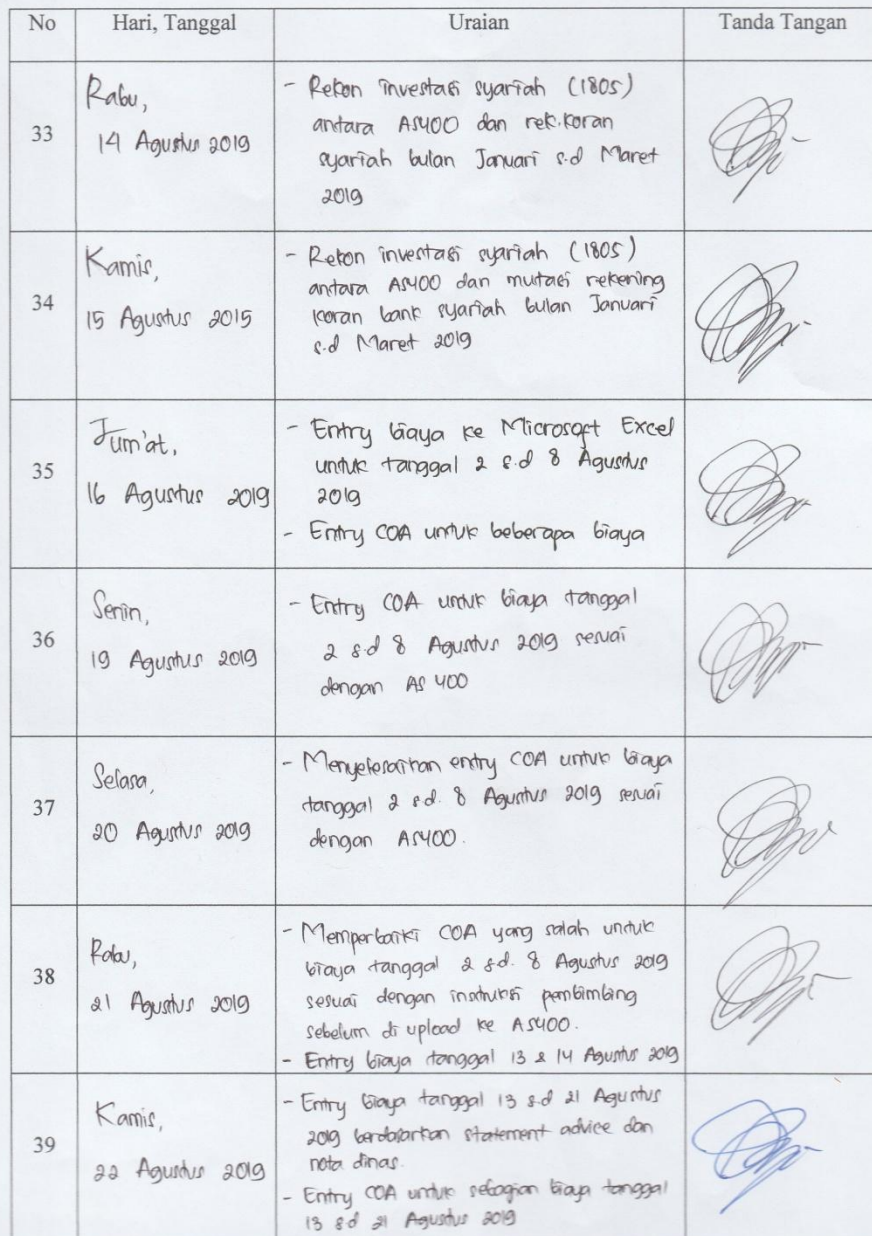 No Hari, Tanggal Uraian Tanda Tangan
33
Rabu,
14 Agustus 2019
- Rekon investasi syariah (1805)
antara AS400 dan rek.koran
syariah bulan Januari s.d Maret
2019
34
Kamis,
15 Agustus 2015
- Rekon investasi syariah (1805)
antara AS400 dan mutasi rekening
koran bank syariah bulan Januari
s.d Maret 2019
35
Jum'at,
16 Agustus 2019
- Entry biaya ke Microsoft Excel
untuk tanggal 2 s.d 8 Agustus
2019
- Entry COA untuk beberapa biaya
36
Senin,
19 Agustus 2019
- Entry COA untuk biaya tanggal
2 s.d 8 Agustus 2019 sesuai
dengan AS 400
37
Selasa,
20 Agustus 2019
- Menyelesaikan entry COA untuk biaya
tanggal 2 s.d. 8 Agustus 2019 sesuai
dengan AS400.
38
Rabu,
21 Agustus 2019
- Memperbaiki COA yang salah untuk
biaya tanggal 2 s.d. 8 Agustus 2019
sesuai dengan instruksi pembimbing
sebelum di upload ke AS400.
- Entry biaya tanggal 13 & 14 Agustus 2019
39
Kamis,
22 Agustus 2019
- Entry biaya tanggal 13 s.d 21 Agustus
2019 berdasarkan statement advice dan
nota dinas.
- Entry COA untuk sebagian biaya tanggal
13 s.d 21 Agustus 2019